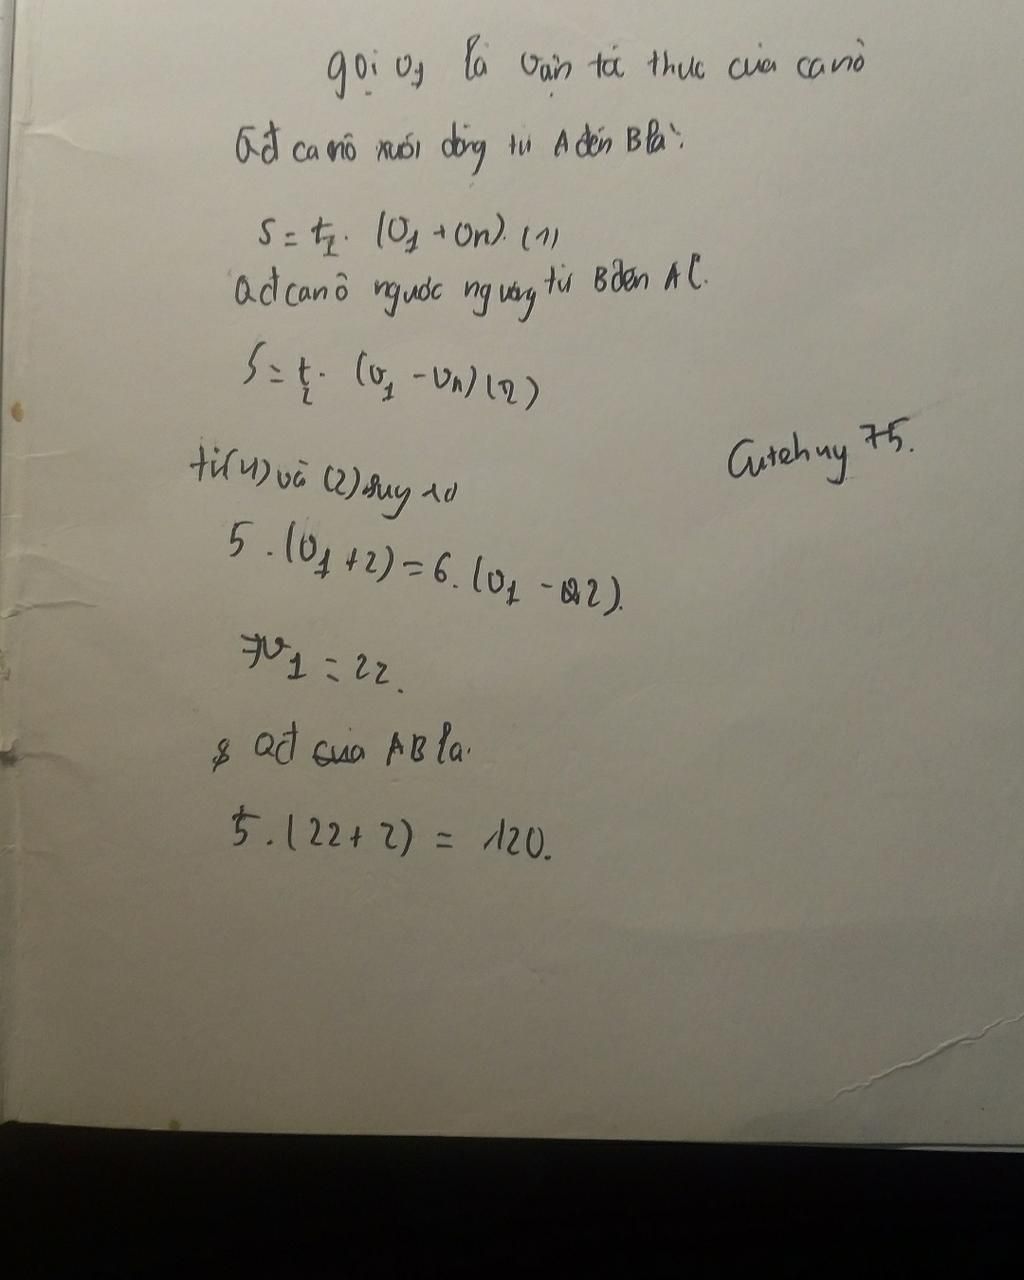 gọi v₁ là vận tốc thực của canô
Qđ ca nô xuôi dòng từ A đến B là:
S = t₁. (v₁ + vn). (1)
Qđ canô ngược ngường từ B đến A l.
S = t₂. (v₁ - vn) (2)
từ (1) và (2) suy ra
Cutehuy 75.
5. (v₁ + 2) = 6. (v₁ - 2).
⇒ v₁ = 22.
Qđ của AB là.
5. (22 + 2) = 120.